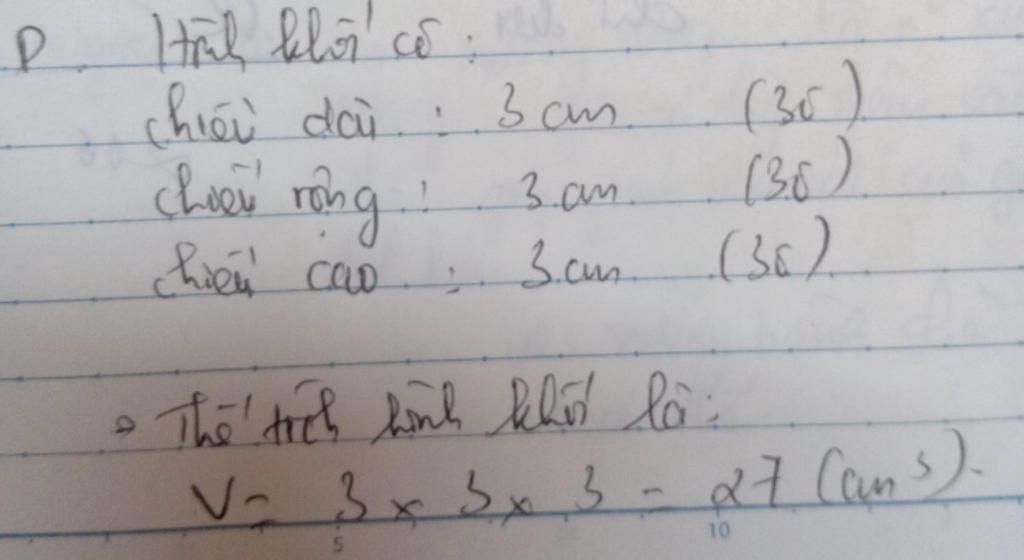 D. Hình khối có:
chiều dài : 3 cm (3ô)
chiều rộng : 3 cm (3ô)
chiều cao : 3 cm (3ô)
Thể tích hình khối là:
V = 3 x 3 x 3 = 27 (cm³).
5 10